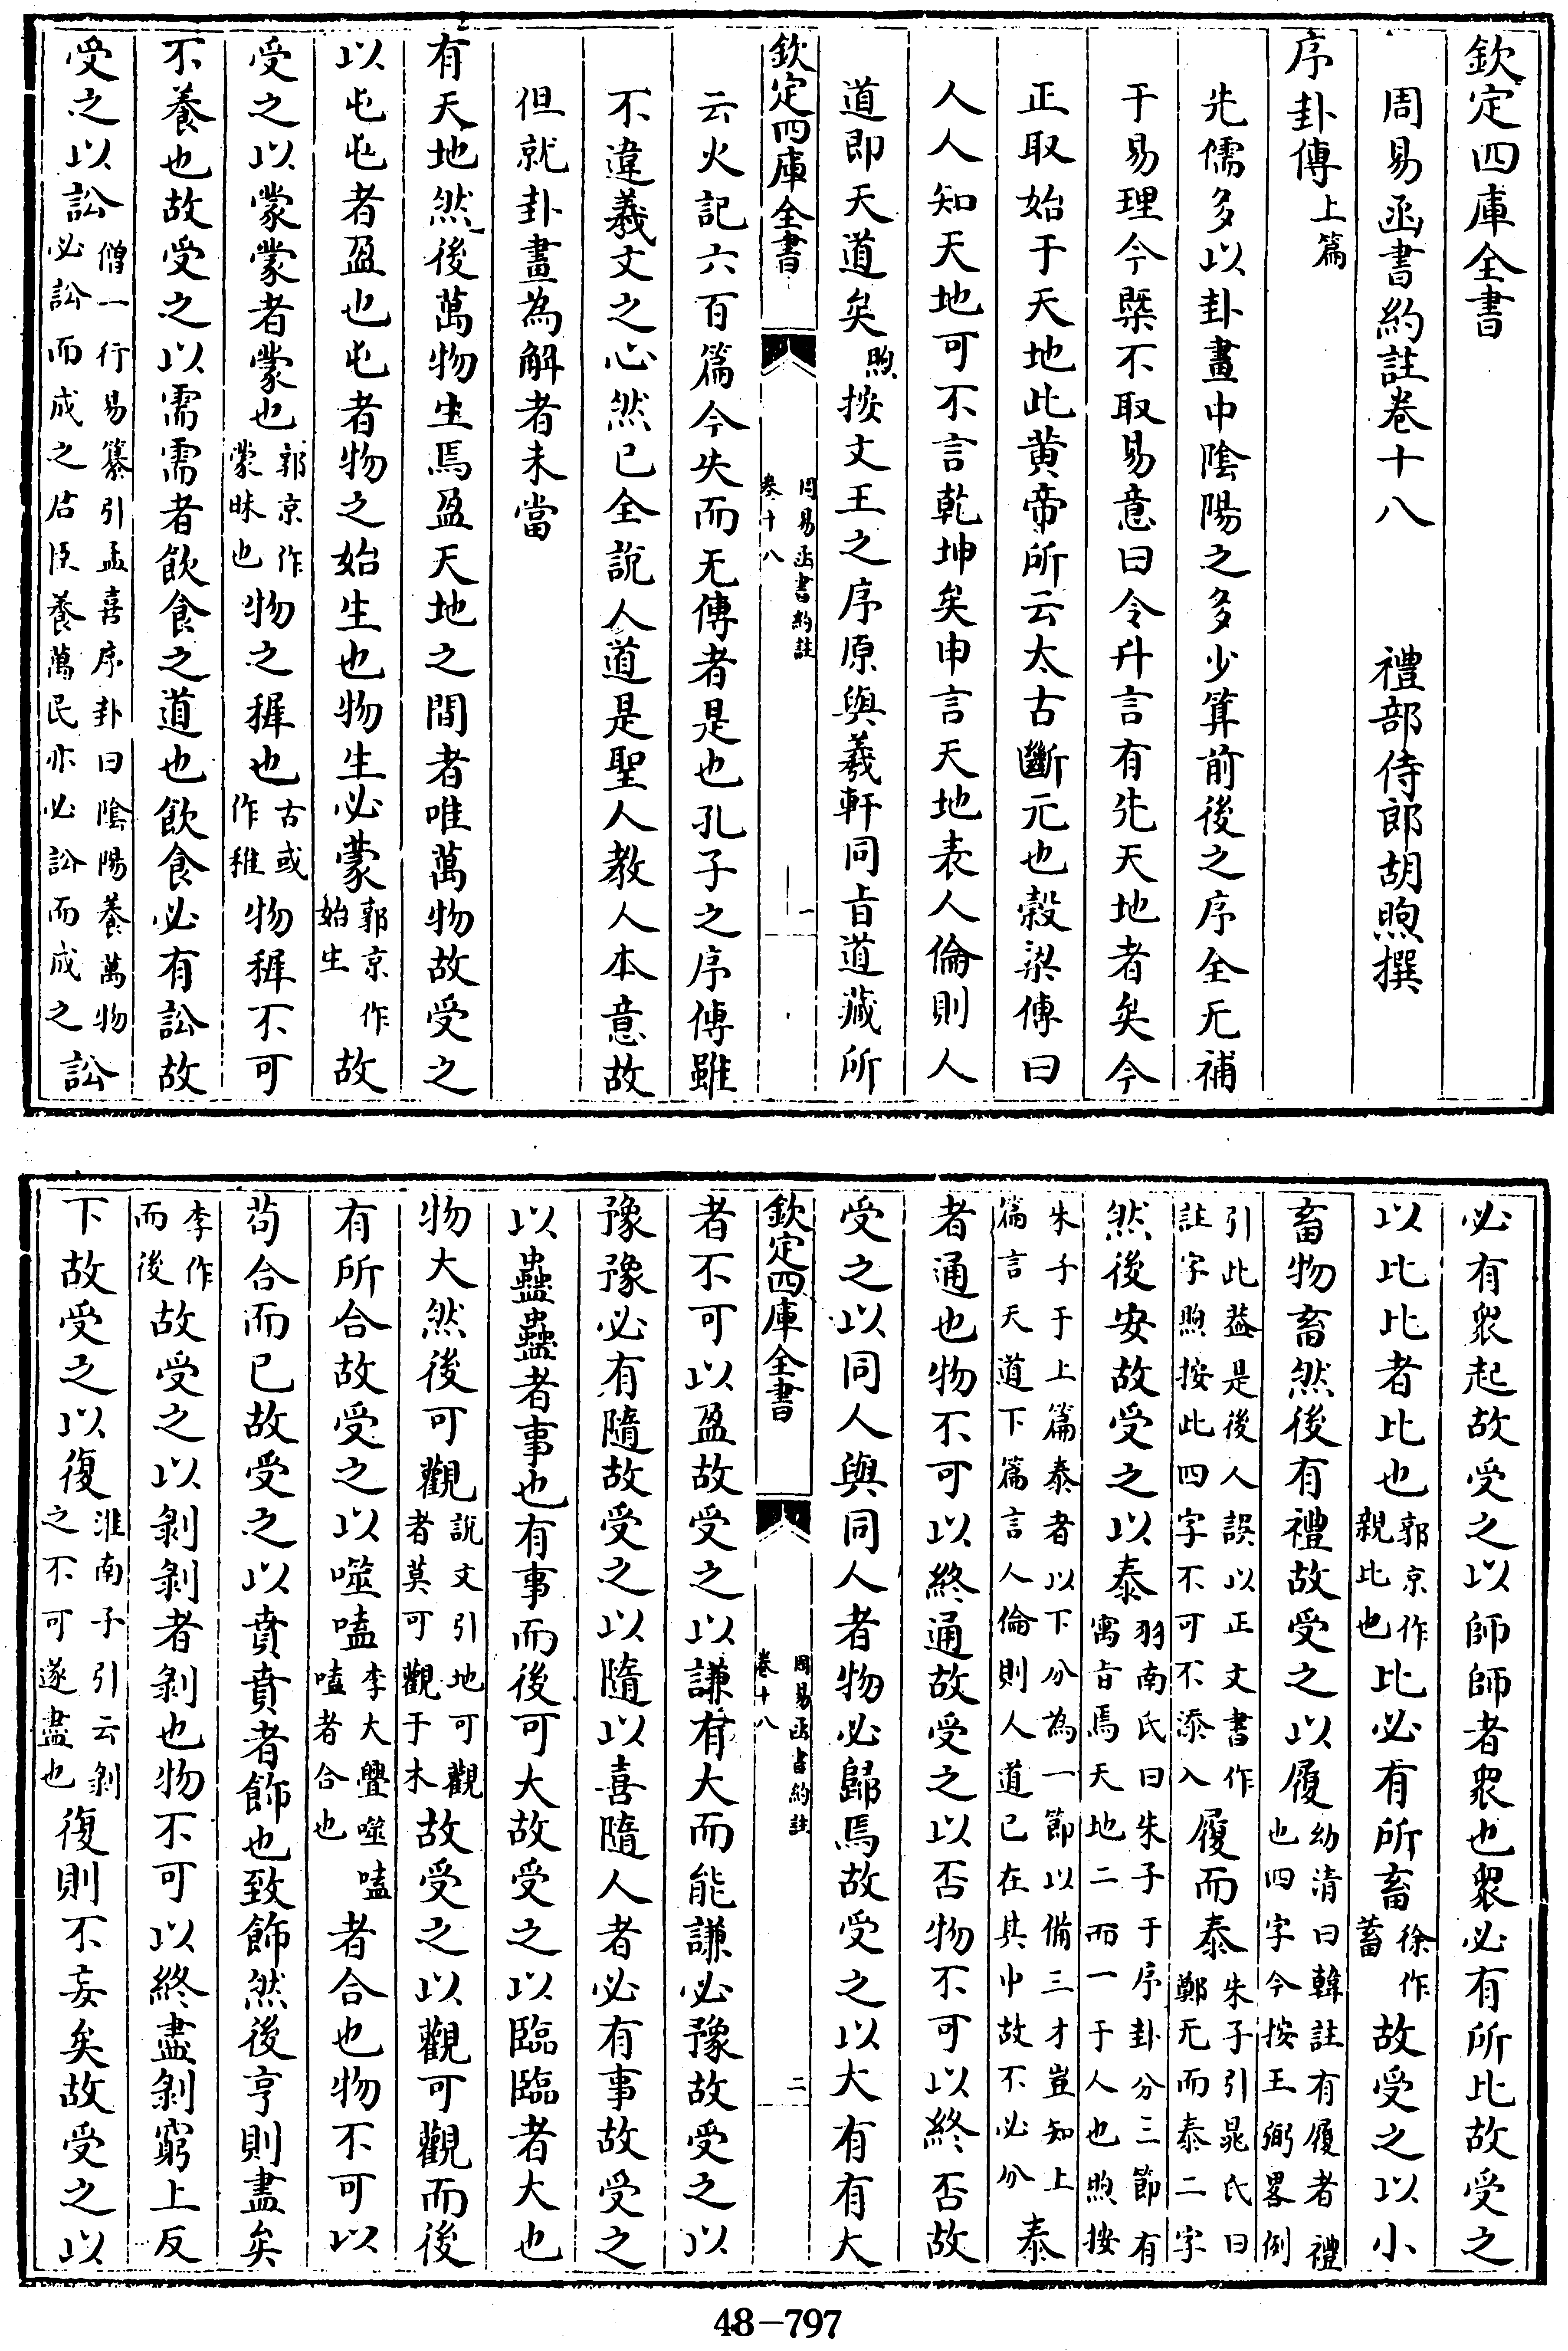 欽定四庫全書
周易函書約註卷十八　禮部侍郎胡煦撰
序卦傳上篇
先儒多以卦畫中陰陽之多少算前後之序全无補
于易理今槩不取易意曰令升言有先天地者矣今
正取始于天地此黃帝所云太古斷元也穀梁傳曰
人人知天地可不言乾坤矣申言天地表人倫則人
道即天道矣煦按文王之序原與羲軒同旨道藏所
欽定四庫全書
周易函書約註
卷十八
一
云火記六百篇今失而无傳者是也孔子之序傳雖
不違羲文之心然已全說人道是聖人教人本意故
但就卦畫為解者未當
有天地然後萬物生焉盈天地之間者唯萬物故受之
以屯屯者盈也屯者物之始生也物生必蒙郭京作始生故
受之以蒙蒙者蒙也郭京作蒙昧也物之穉也古或作稚物穉不可
不養也故受之以需需者飲食之道也飲食必有訟故
受之以訟僧一行易纂引孟喜序卦曰陰陽養萬物必訟而成之君臣養萬民亦必訟而成之訟
必有衆起故受之以師師者衆也衆必有所比故受之
以比比者比也郭京作親比也比必有所畜徐作蓄故受之以小
畜物畜然後有禮故受之以履幼清曰韓註有履者禮也四字今按王弼畧例
引此葢是後人誤以正文書作註字煦按此四字不可不添入履而泰朱子引晁氏曰鄭无而泰二字
然後安故受之以泰羽南氏曰朱子于序卦分三節有寓旨焉天地二而一于人也煦按
朱子于上篇泰者以下分為一節以備三才豈知上篇言天道下篇言人倫則人道已在其中故不必分泰
者通也物不可以終通故受之以否物不可以終否故
受之以同人與同人者物必歸焉故受之以大有有大
欽定四庫全書
周易函書約註
卷十八
二
者不可以盈故受之以謙有大而能謙必豫故受之以
豫豫必有隨故受之以隨以喜隨人者必有事故受之
以蠱蠱者事也有事而後可大故受之以臨臨者大也
物大然後可觀說文引地可觀者莫可觀于木故受之以觀可觀而後
有所合故受之以噬嗑李大舋噬嗑嗑者合也者合也物不可以
苟合而已故受之以賁賁者飾也致飾然後亨則盡矣
李作而後故受之以剝剝者剝也物不可以終盡剝窮上反
下故受之以復淮南子引云剝之不可遂盡也復則不妄矣故受之以
48-797